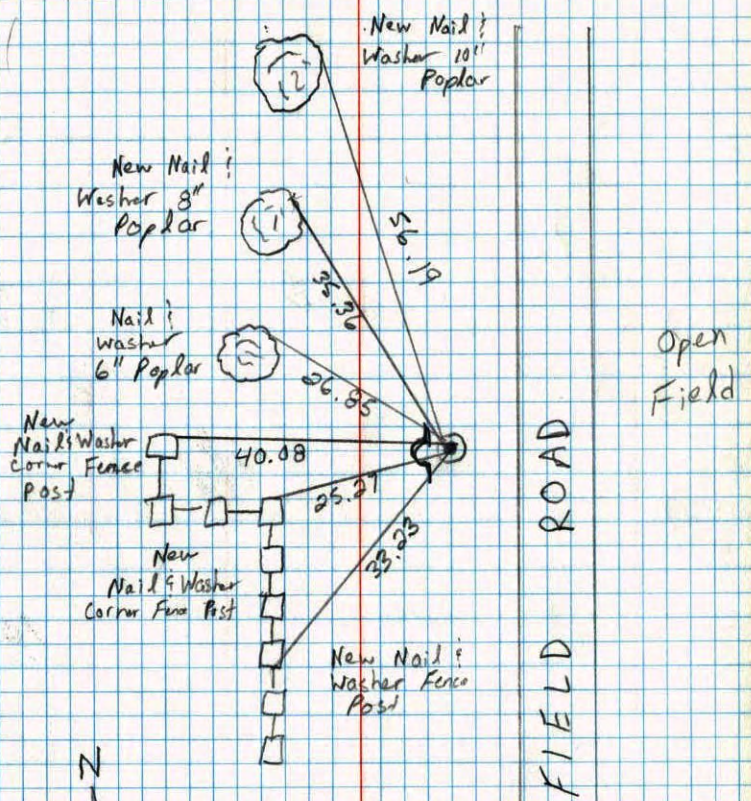 New Nail &
Washer 10"
Poplar
2
New Nail &
Washer 8"
Poplar
1
56.19
35.36
Nail &
Washer
6" Poplar
26.85
Open
Field
New
Nail & Washer
Corner Fence
Post
40.08
25.27
33.23
New
Nail & Washer
Corner Fence Post
New Nail &
Washer Fence
Post
FIELD ROAD
N